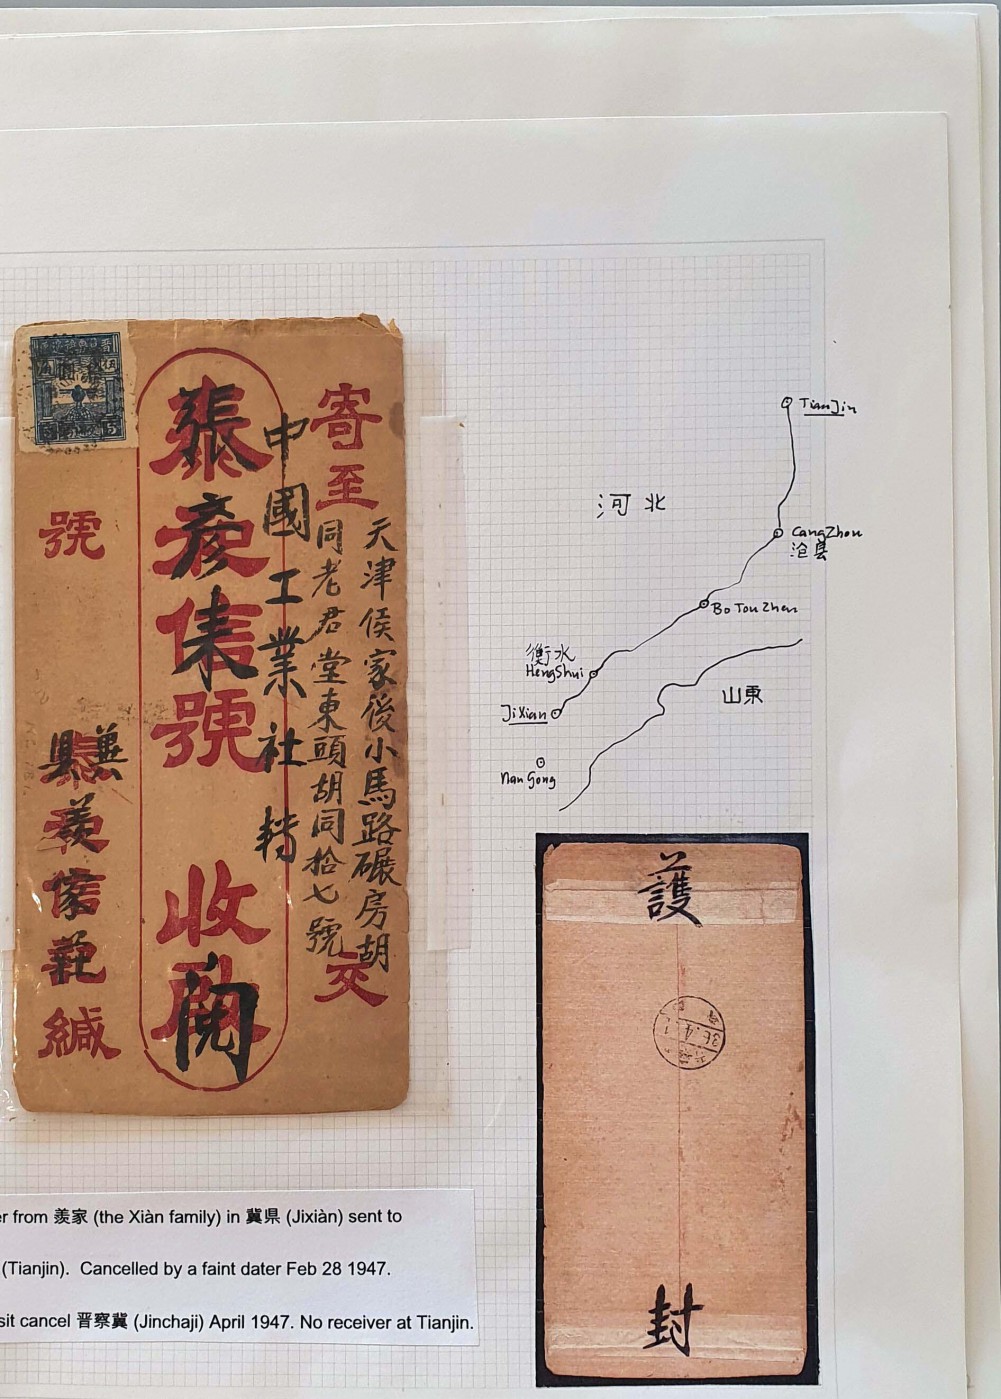 寄至
天津侯家後小馬路碾房胡
同老君堂東頭胡同拾七號
交
中國工業社轉
張彥來
信號
收
閱
號
冀
縣
羨家莊
緘
河北
TianJin
CangZhou
沧县
Bo Tou Zhen
衡水
HengShui
JiXian
山東
Nan Gong
護
36.4.1
封
er from 羨家 (the Xiàn family) in 冀県 (Jixiàn) sent to
(Tianjin). Cancelled by a faint dater Feb 28 1947.
sit cancel 晋察冀 (Jinchaji) April 1947. No receiver at Tianjin.